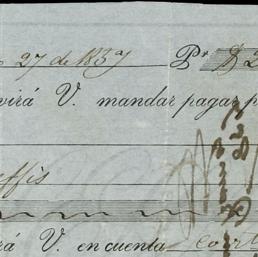 27 de 1837 Pr $ 2
virá V. mandar pagar p
ffis
rá V. en cuenta